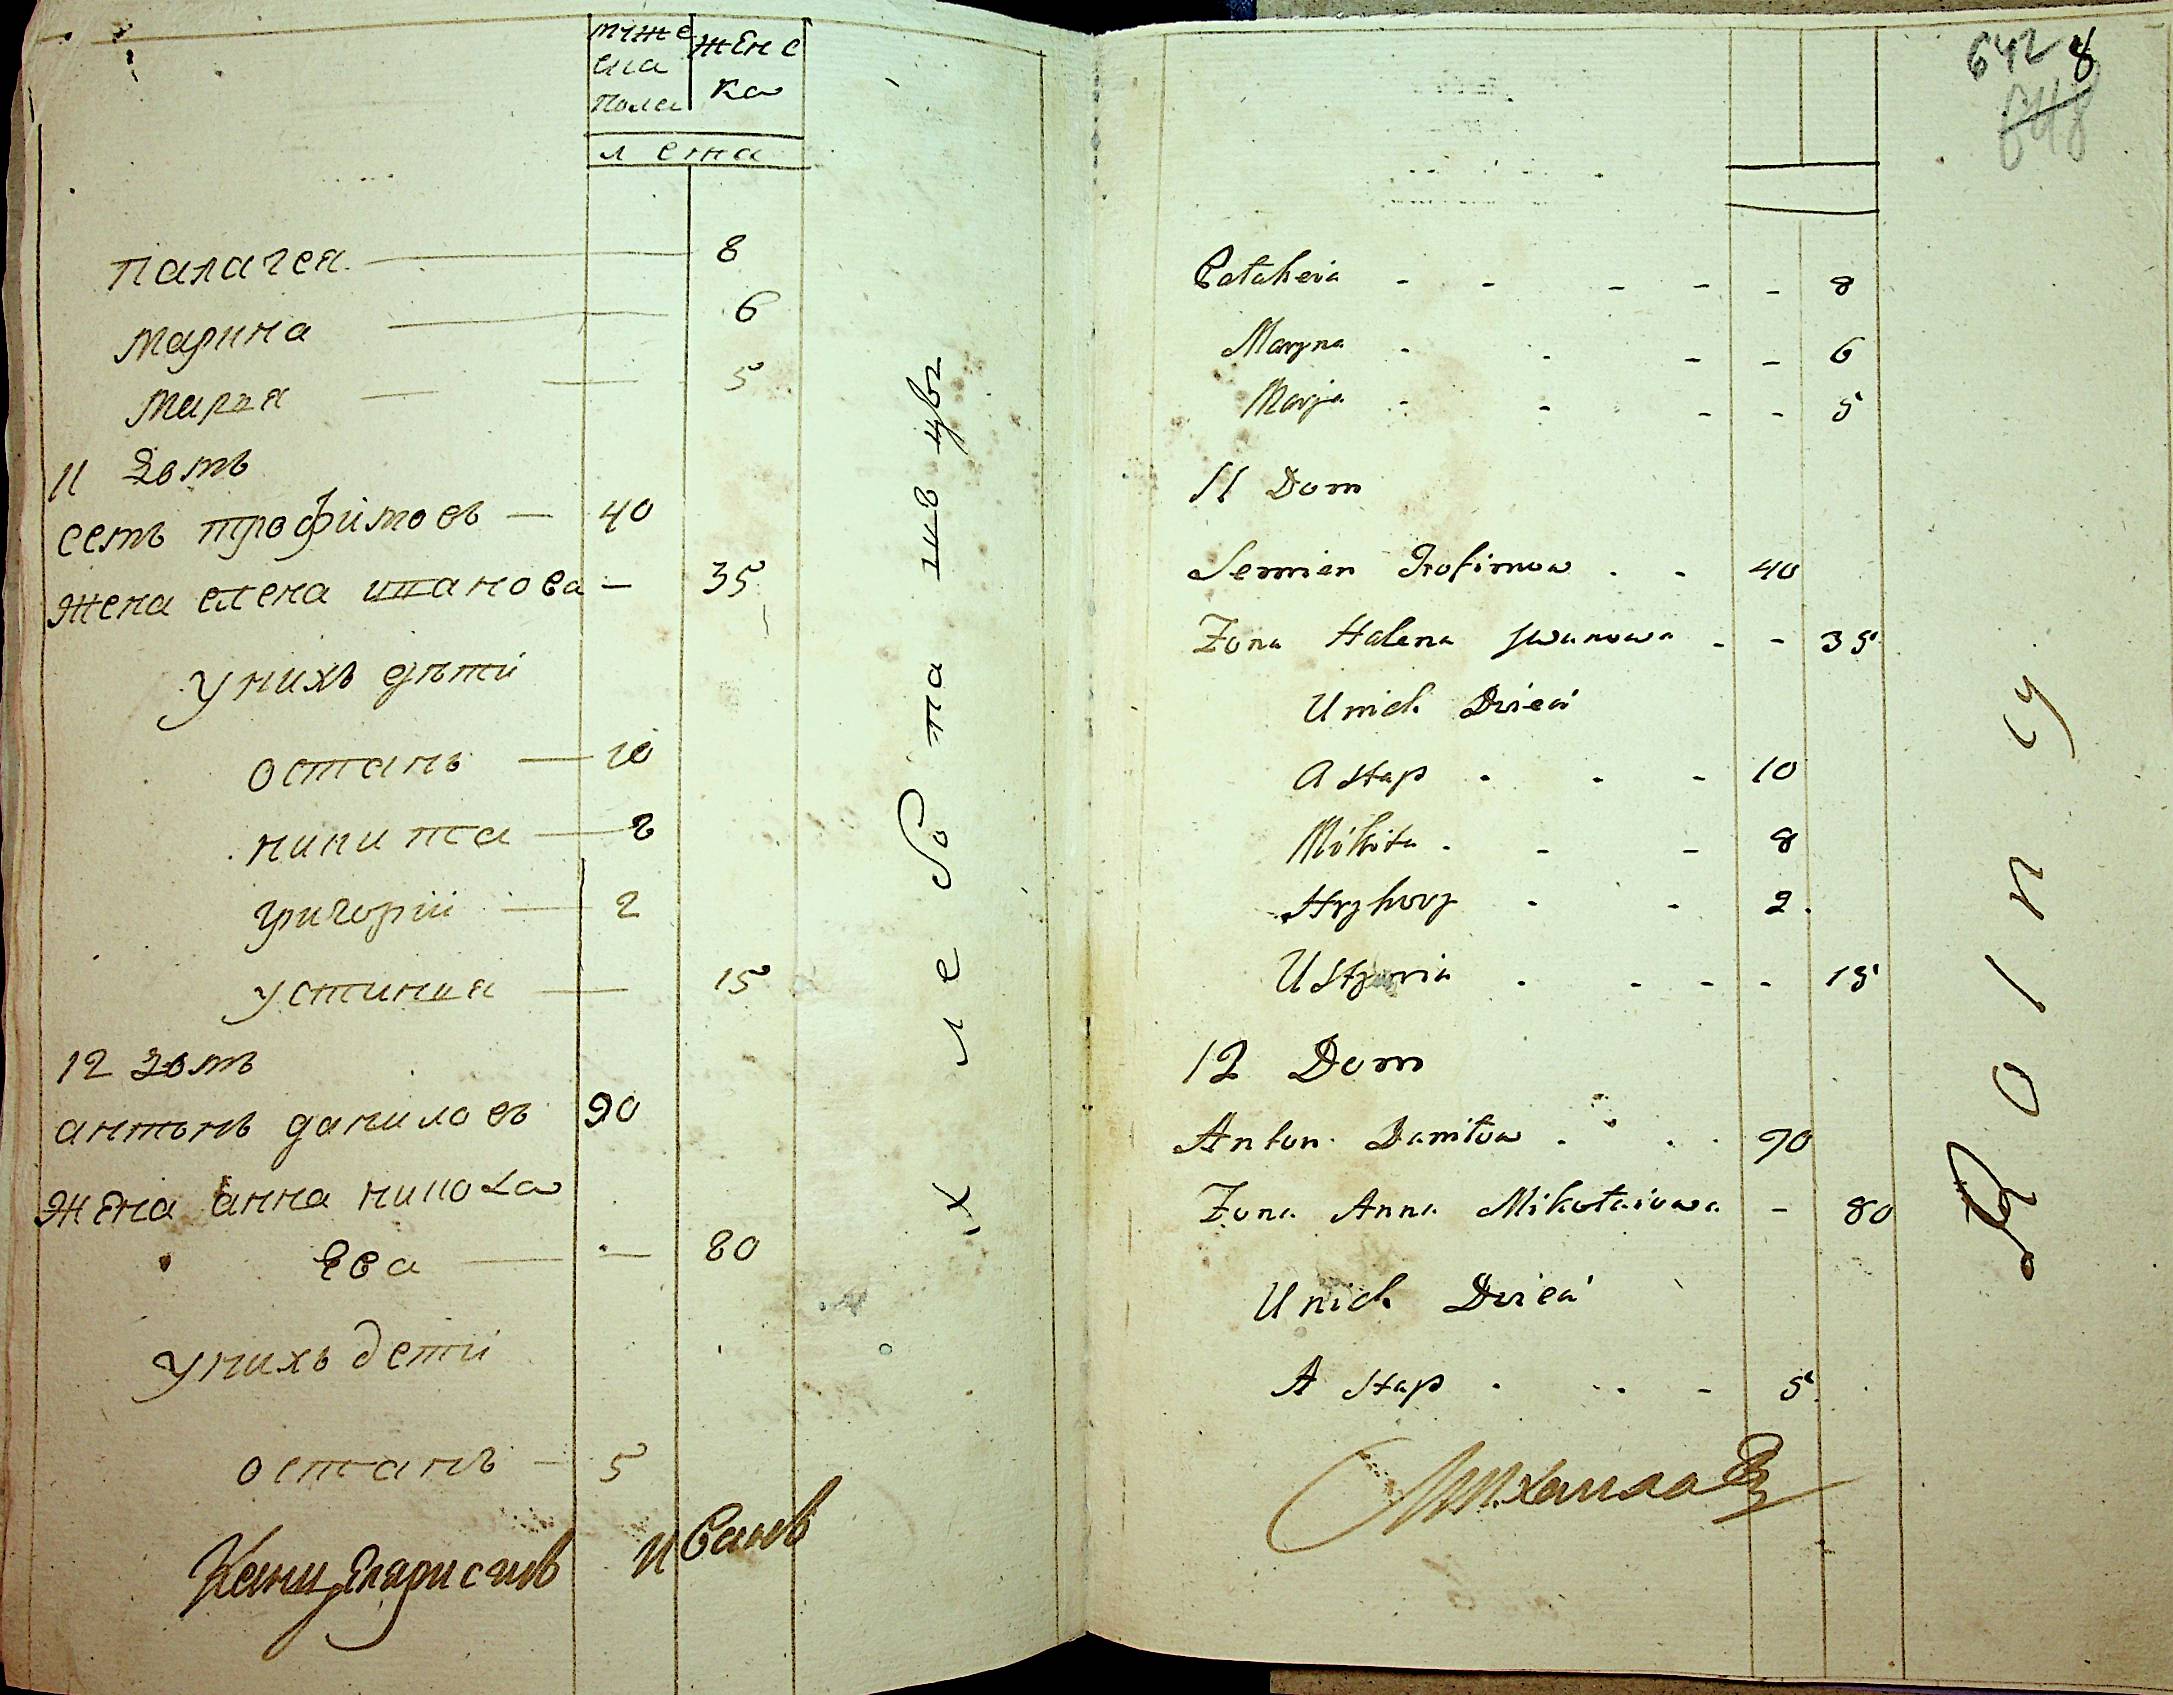 мужс
ска
пола
женс
ка
лѣта
палагея 8
марина 6
марья 5
11 домъ
семъ трофимовъ — 40
жена елена иванова — 35
унихъ дѣти
остапъ — 10
никита — 8
григорiй — 2
устинья — 15
12 домъ
антонъ даниловъ 90
жена анна никола
ева — 80
унихъ дети
остапъ — 5
Ивановъ
642 8
648
Palaheia - - - - - 8
Maryna - - - - 6
Marja - - - - 5
11 Dom
Semien Trofimow . - 40
Zona Halena Jwanowa - - 35
Unich Dzieci
Astap - - - 10
Mikita . - - 8
Hryhory - - 2.
Ustynia . . - - 15
12 Dom
Anton Daniłow . . . . 90
Zona Anna Mikołaiowa - 80
Unich Dzieci
Astap . . . - 5
Михаилъ